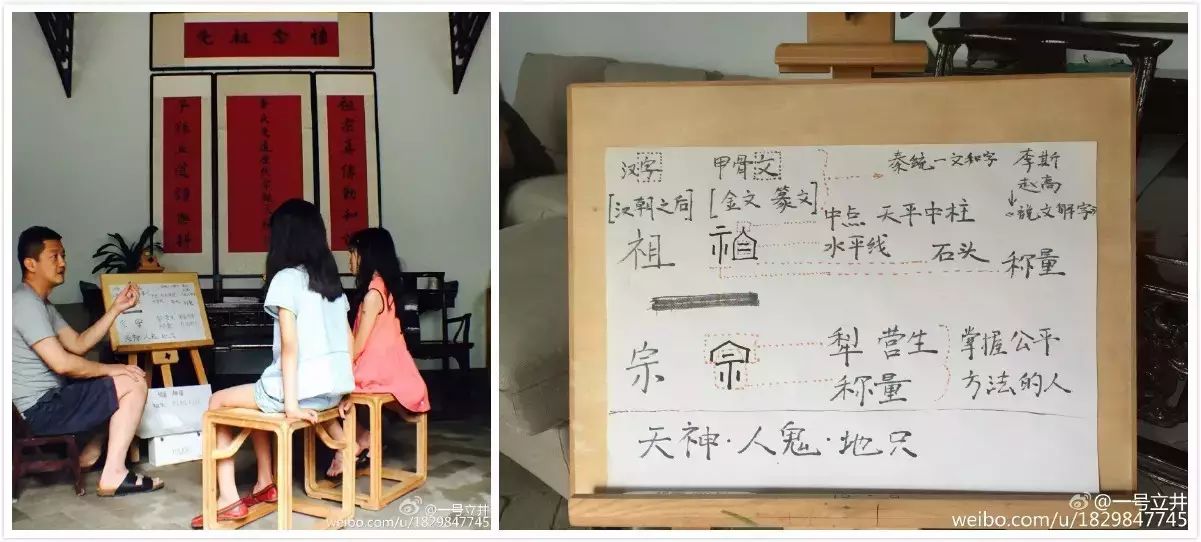 懷念祖先
汉字 甲骨文 秦统一文和字 李斯
[汉朝之后] [金文 篆文] 赵高
说文解字
中点 天平中柱
祖 祖 水平线 石头 称量
宗 宗 犁 营生 掌握公平
称量 方法的人
天神·人鬼·地只
@一号立井
weibo.com/u/1829847745
@一号立井
weibo.com/u/1829847745